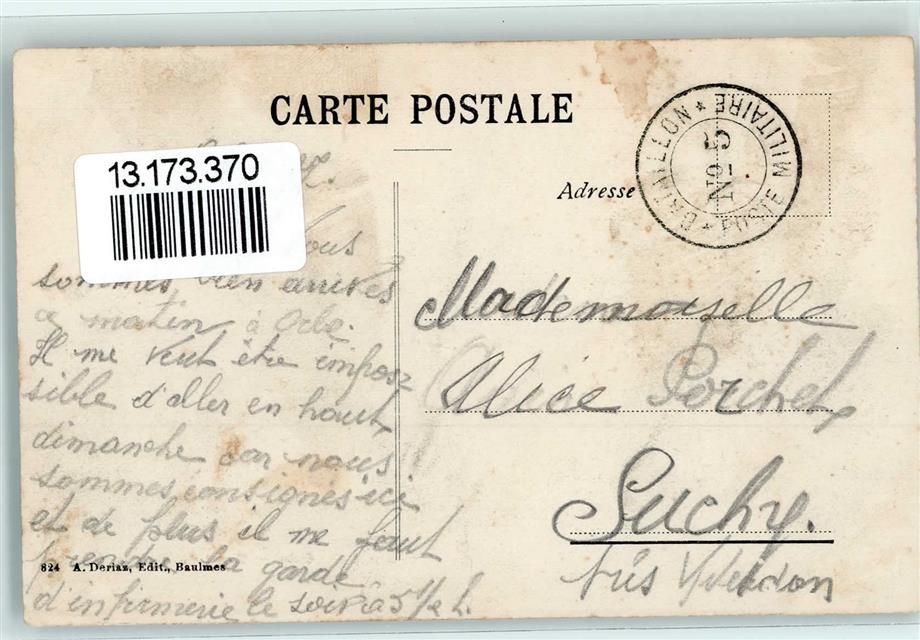 CARTE POSTALE
13.173.370
* POSTE MILITAIRE *
No 5
Adresse
Nous
sommes bien arrivés
ce matin, à Orbe.
Il me veut être impos=
sible d'aller en haut
dimanche car nous
sommes consignés ici
et de plus il me faut
prendre la garde
d'infirmerie le soir à 5 1/2 h.
Mademoiselle
Alice Porchet
Suchy.
près Yverdon
824 A. Deriaz, Edit., Baulmes